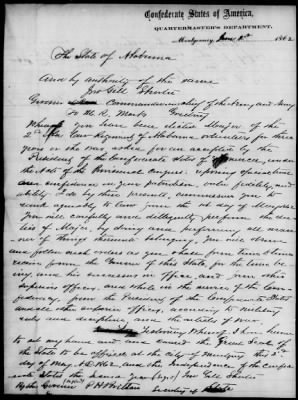 Confederate States of America,
QUARTERMASTER'S DEPARTMENT,
Montgomery, June 1862
The State of Alabama
And by authority of the same
Jno Gill Shorter
Governor Commander in chief of the Army and Navy
To H. R. Greeting
Whereas You have been elected Major of the
2nd Regiment of Alabama volunteers for three
years or the war and accepted by the
President of the Confederate States of America, under
the Acts of the Provisional Congress: reposing special
confidence in your patriotism, valor, fidelity, and
ability I do by these presents, commission you to
rank agreeably to law from the 1st day of
You will carefully and diligently perform the du-
ties of Major, by doing and performing all man-
ner of things thereunto belonging, You will observe
and follow such orders as you shall from time to time
receive from the Governor of this State, for the time be-
ing, and his successors in office, and from other
superior officers, and while in the service of the Con-
federacy from the President of the Confederate States
and all other superior officers, according to military
rule and discipline and the articles of War.
In testimony Whereof I have here-
to set my hand and and caused the Great Seal of
the State to be affixed at the City of Montgomery this 2nd
of May A.D. 1862 and the Independence of the Confeder-
ate States the second year (sgd) Jno Gill Shorter
By the Governor (signed) P H Brittan Secretary of State